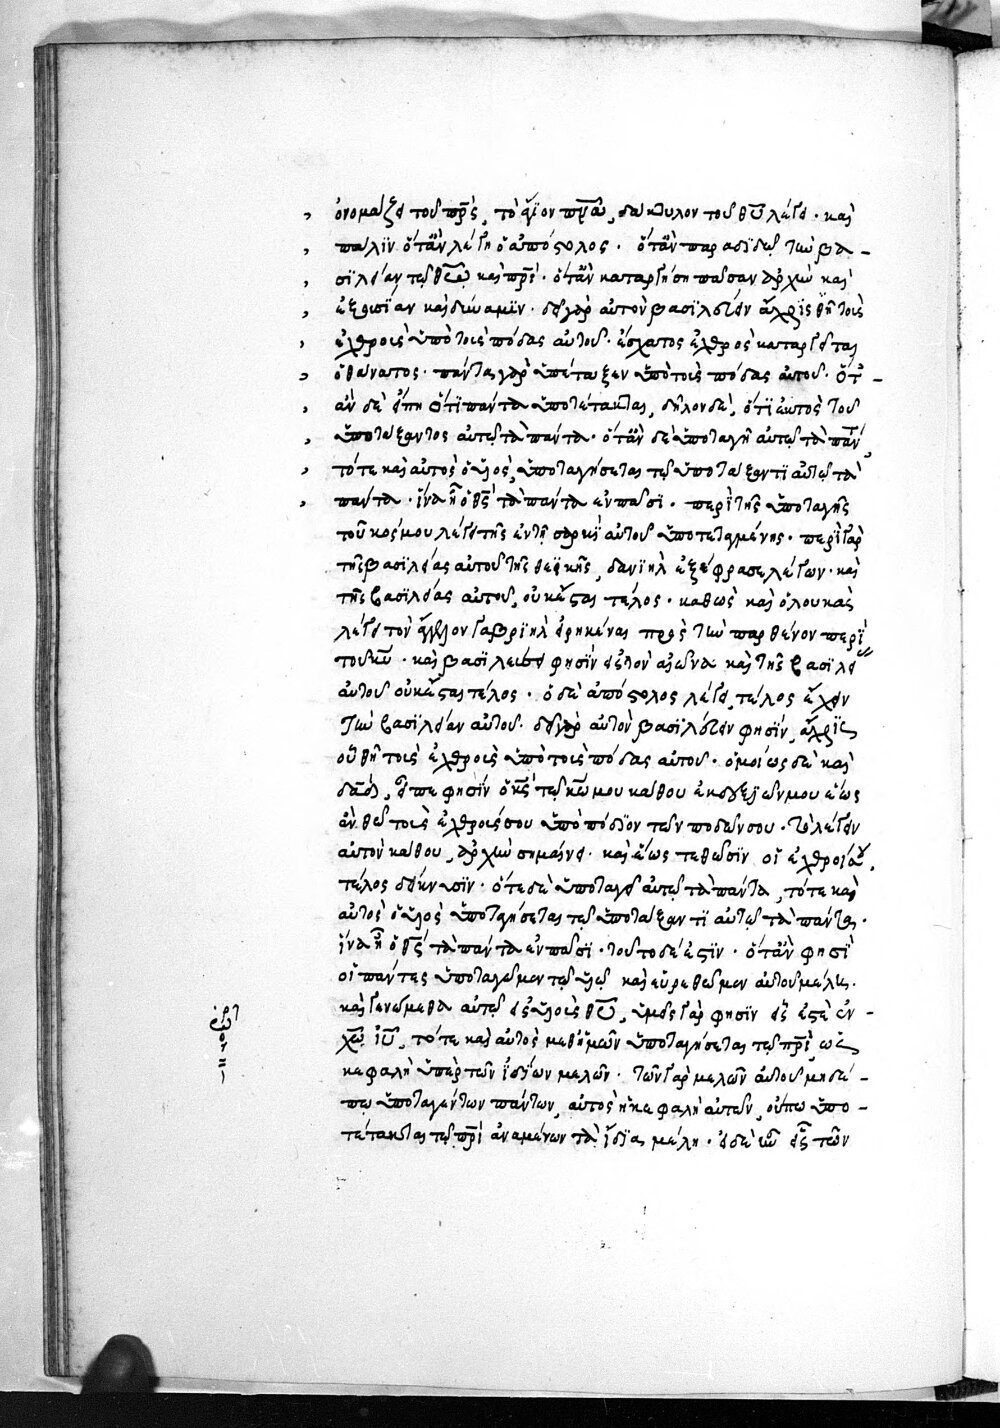 ὀνομάζει τοῦ πρ̅ς, τὸ ἅγιον πν̅α, δάκτυλον τοῦ θυ̅ λέγει· καὶ
πάλϊν ὅτὰν λέγῃ ὁ ἀπόστολος· ὅτὰν παραδϊδῷ τὴν βα-
σϊλείαν τῷ θω̅ καὶ πρϊ̅· ὅτὰν καταργήσῃ πᾶσαν ἀρχὴν καὶ
ἐξουσίαν καὶ δύναμϊν· δεῖ γὰρ αὐτὸν βασϊλεύειν ἄχρϊς θῇ τοὺς
ἐχθροὺς ὑπὸ τοὺς πόδας αὐτοῦ· ἔσχατος ἐχθρὸς καταργεῖται
ὁ θάνατος· πάντα γὰρ ὑπέταξεν ὑπὸ τοὺς πόδας αὐτοῦ· ὅτ-
ὰν δὲ εἴπη ὅτϊ πάντα ὑποτέτακται, δῆλον δὲ, ὅτϊ ἐκτὸς τοῦ
ὑποτάξαντος αὐτῷ τὰ πάντα· ὅτὰν δὲ ὑποταγῇ αὐτῷ τὰ πάντ
τότε καὶ αὐτὸς ὁ υἱὸς, ὑποταγήσεται τῷ ὑποτάξαντϊ αὐτῷ τὰ
πάντα· ἵνα ᾖ ὁ θς̅ τὰ πάντα ἐν πᾶσϊ· περὶ τῆς ὑποταγῆς
τοῦ κόσμου λέγει τῆς ἐν τῇ σαρκὶ αὐτοῦ ὑποτεταγμένης· περὶ γὰρ
τῆς βασιλείας αὐτοῦ τῆς θεϊκῆς, δανιὴλ ἐξέφρασε λέγων· καὶ
τῆς βασϊλείας αὐτοῦ, οὐκ ἔσται τέλος· καθὼς καὶ ὁ λουκᾶς
λέγει τὸν ἄγγελον γαβρϊὴλ εἰρηκέναι πρὸς τὴν παρθένον περὶ
τοῦ κυ̅· καὶ βασϊλεύσει φησὶν εἰς τὸν αἰῶνα καὶ τῆς βασϊλεί
αὐτοῦ οὐκ ἔσται τέλος· ὁ δὲ ἀπόστολος λέγει, τέλος ἔχειν
τὴν βασϊλείαν αὐτοῦ· δεῖ γὰρ αὐτὸν βασϊλεύειν φησὶν, ἄχρϊς
οὗ θῇ τοὺς ἐχθροὺς ὑπὸ τοὺς πόδας αὐτοῦ· ὁμοίως δὲ καὶ
δαδ̅, εἶπε φησὶν ὁ κς̅ τῷ κω̅ μου κάθου ἐκ δεξϊῶν μου ἕως
ἂν θῶ τοὺς ἐχθρούς σου ὑπὸ πόδϊον τῶν ποδῶν σου· τὸ λέγειν
αὐτὸν κάθου, ἀρχὴν σημαίνει· καὶ ἕως τεθῶσϊν οἱ ἐχθροὶ αὐ,
τέλος δείκνυσϊν· ὅτε δὲ ὑποταγῇ αὐτῷ τὰ πάντα, τότε καὶ
αὐτὸς ὁ υἱὸς ὑποταγήσεται τῷ ὑποτάξαντϊ αὐτῷ τὰ πάντα·
ἵνα ᾖ ὁ θς̅ τὰ πάντα ἐν πᾶσϊ· τοῦτο δέ ἐστϊν· ὅτὰν φησϊ
οἱ πάντες ὑποταγῶμεν τῷ υἱῷ καὶ εὑρεθῶμεν αὐτοῦ μέλη·
καὶ γενώμεθα αὐτῷ εἰς υἱοὺς θυ̅, ὑμεῖς γὰρ φησὶν εἷς ἐστὲ ἐν
χω̅ ιυ̅, τότε καὶ αὐτὸς μεθ' ἡμῶν ὑποταγήσεται τῷ πρϊ̅ ὡς
κεφαλὴ ὑπὲρ τῶν ἰδϊων μελῶν· τῶν γὰρ μελῶν αὐτοῦ μηδέ-
πω ὑποταγέντων πάντων, αὐτὸς ἡ κεφαλὴ αὐτῶν, οὔπω ὑπο-
τέτακται τῷ πρϊ̅ ἀναμένων τὰ ἴδϊα μέλη· εἰ δὲ ἦν εἷς τῶν